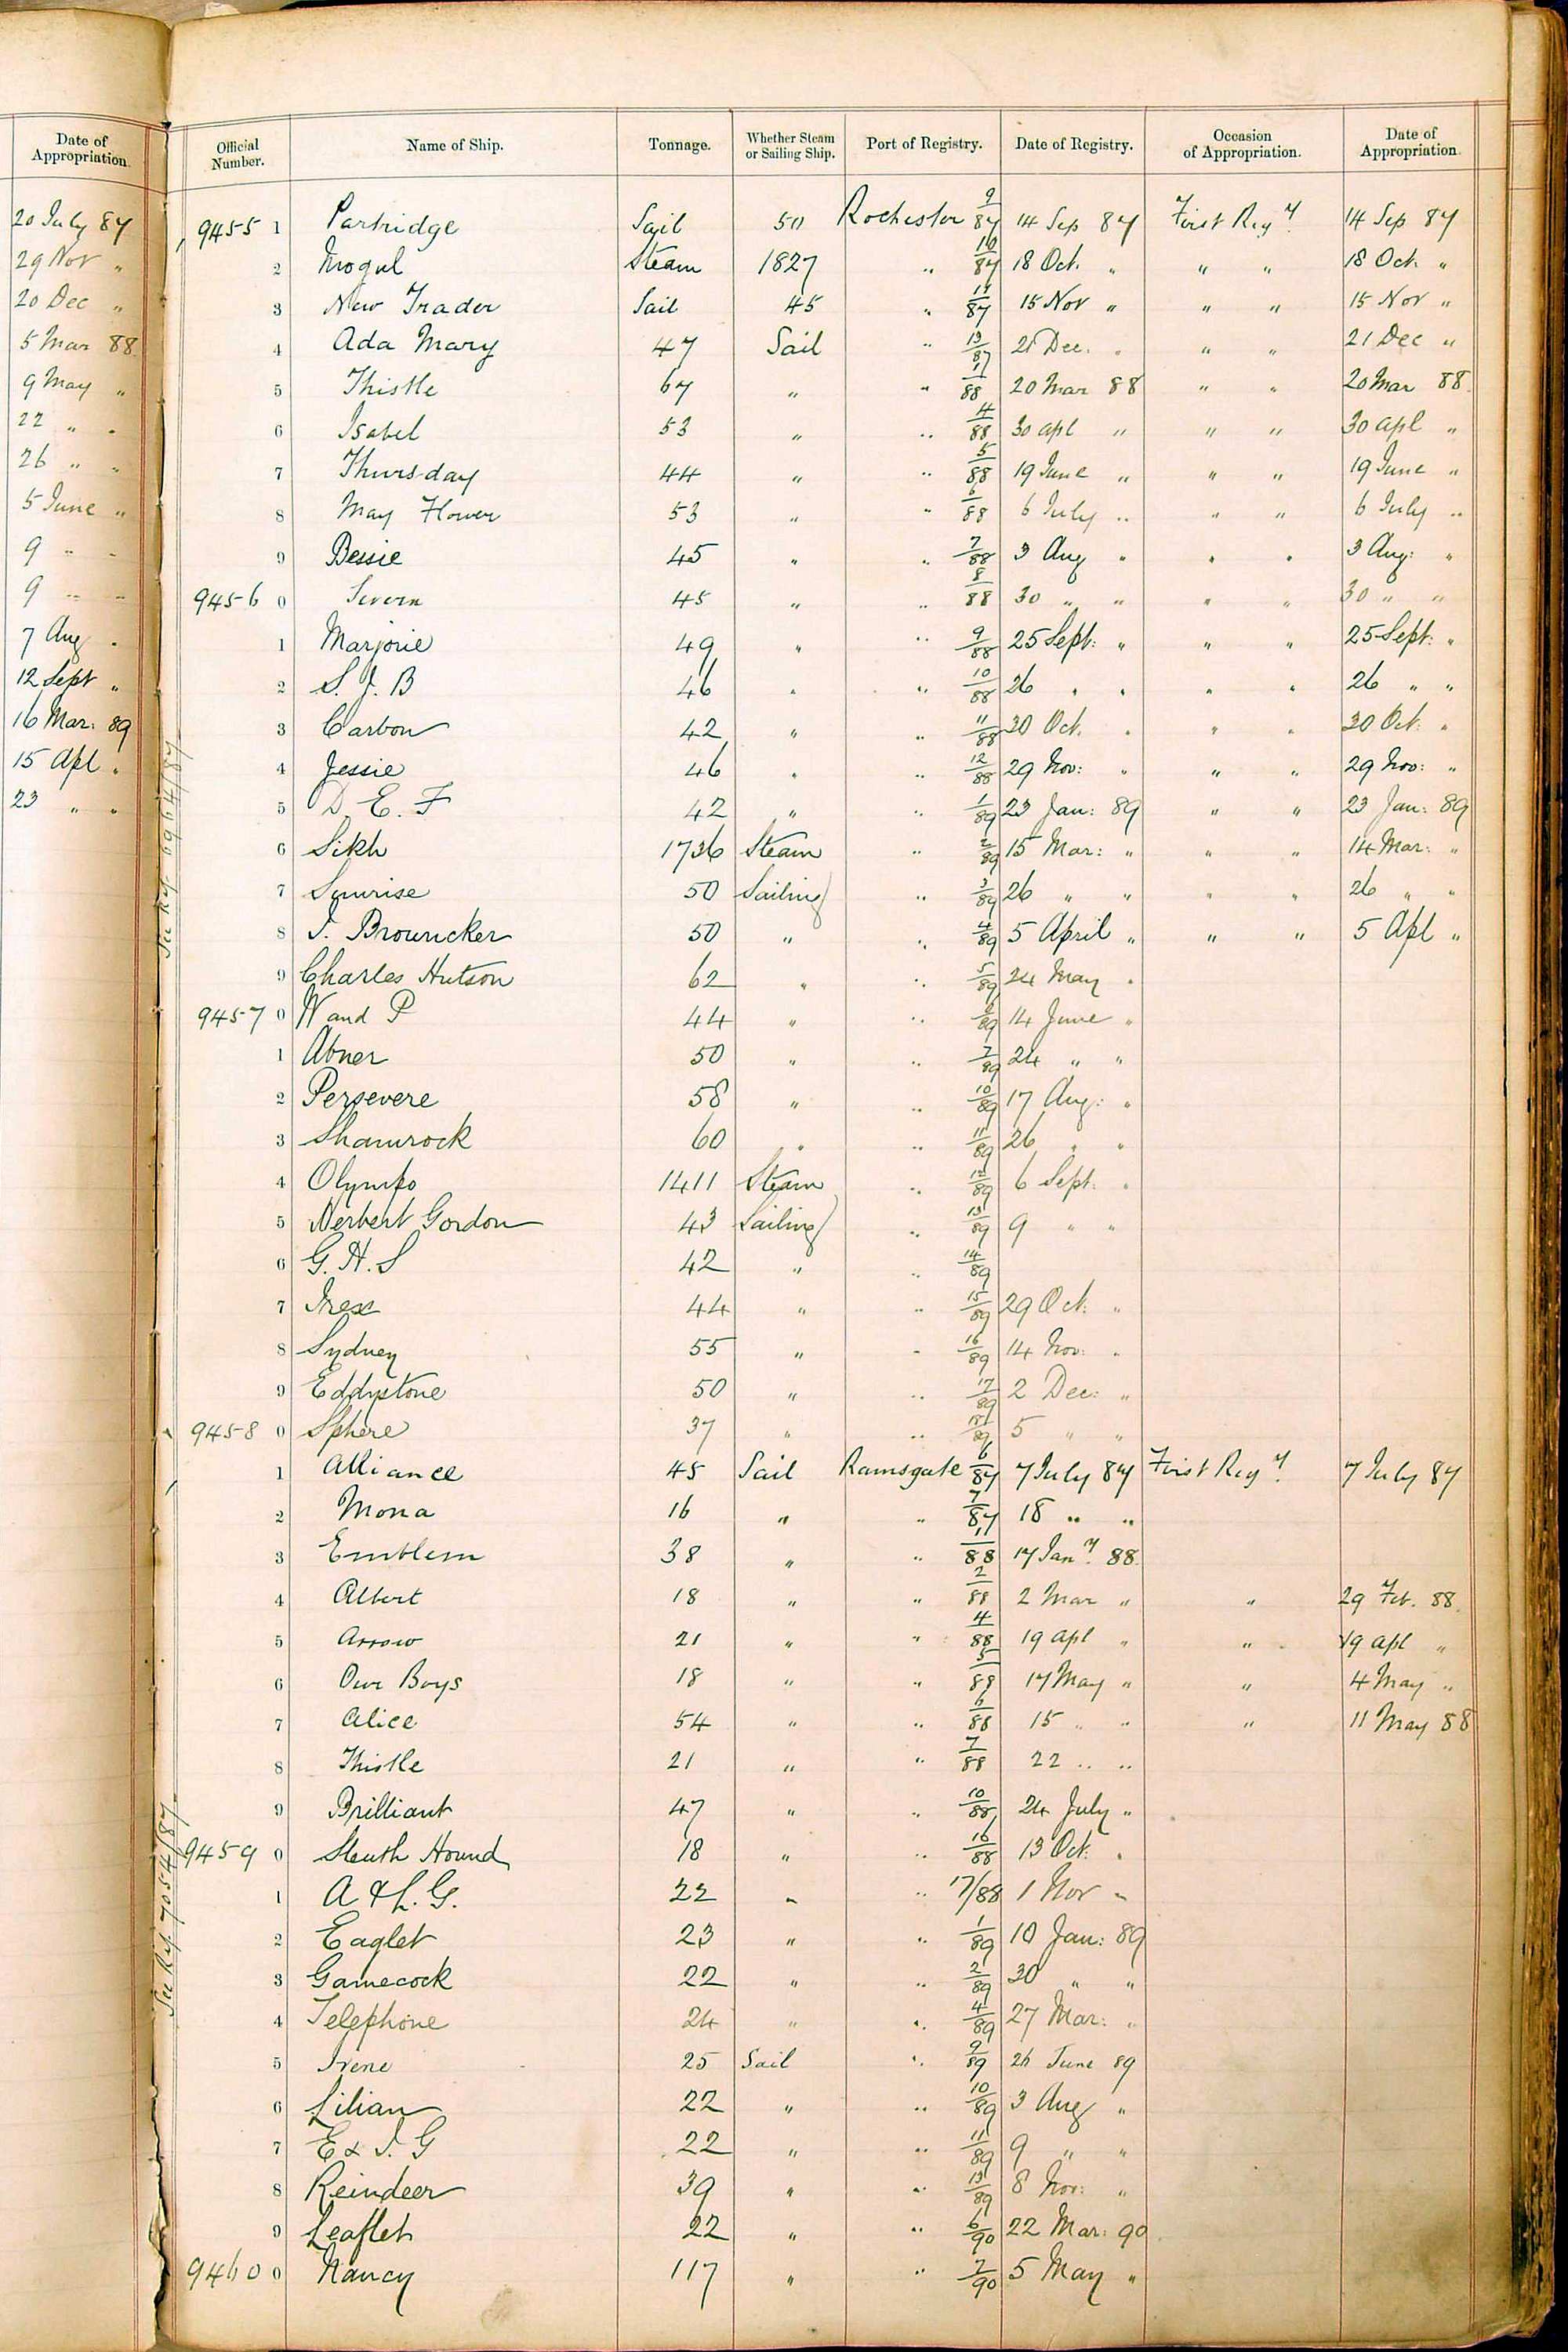 Date of Appropriation.
20 July 87
29 Nov "
20 Dec "
5 Mar 88
9 May "
22 " "
26 " "
5 June "
9 " "
9 " "
7 Aug "
12 Sept "
16 Mar: 89
15 Apl "
23 " "
Official Number. Name of Ship. Tonnage. Whether Steam or Sailing Ship. Port of Registry. Date of Registry. Occasion of Appropriation. Date of Appropriation.
9455 1 Partridge Sail 50 Rochester 9/87 14 Sep 87 First Regy. 14 Sep 87
2 Mogul Steam 1827 " 10/87 18 Oct. " " " 18 Oct. "
3 New Trader Sail 45 " 11/87 15 Nov " " " 15 Nov "
4 Ada Mary 47 Sail " 13/87 21 Dec. " " " 21 Dec "
5 Thistle 67 " " 1/88 20 Mar 88 " " 20 Mar 88
6 Isabel 53 " " 4/88 30 apl " " " 30 apl "
7 Thursday 44 " " 5/88 19 June " " " 19 June "
8 May Flower 53 " " 6/88 6 July " " " 6 July "
9 Bessie 45 " " 7/88 3 Aug " " " 3 Aug: "
9456 0 Severn 45 " " 8/88 30 " " " " 30 " "
1 Marjorie 49 " " 9/88 25 Sept: " " " 25 Sept: "
2 S. J. B 46 " " 10/88 26 " " " " 26 " "
3 Carbon 42 " " 11/88 30 Oct. " " " 30 Oct: "
4 Jessie 46 " " 12/88 29 Nov: " " " 29 Nov: "
5 D. E. F 42 " " 1/89 23 Jan: 89 " " 23 Jan: 89
6 Sikh 1736 Steam " 2/89 15 Mar: " " " 14 Mar: "
7 Sunrise 50 Sailing " 3/89 26 " " " " 26 " "
8 J. Brouncker 50 " " 4/89 5 April " " " 5 Apl "
9 Charles Hutson 62 " " 5/89 24 May "
9457 0 W and P 44 " " 6/89 14 June "
1 Abner 50 " " 7/89 24 " "
2 Persevere 58 " " 10/89 17 Aug: "
3 Shamrock 60 " " 11/89 26 " "
4 Olympo 1411 Steam " 12/89 6 Sept: "
5 Herbert Gordon 43 Sailing " 13/89 9 " "
6 G. H. S 42 " " 14/89
7 Irex 44 " " 15/89 29 Oct: "
8 Sydney 55 " " 16/89 14 Nov: "
9 Eddystone 50 " " 17/89 2 Dec: "
9458 0 Sphere 37 " " 18/89 5 " "
1 Alliance 45 Sail Ramsgate 6/87 7 July 87 First Regy. 7 July 87
2 Mona 16 " " 7/87 18 " "
3 Emblem 38 " " 1/88 17 Jany. 88
4 Albert 18 " " 2/88 2 Mar " " 29 Feb. 88
5 Arrow 21 " " 4/88 19 apl " " 19 apl "
6 Our Boys 18 " " 5/88 17 May " " 4 May "
7 Alice 54 " " 6/88 15 " " " 11 May 88
8 Thistle 21 " " 7/88 22 " "
9 Brilliant 47 " " 10/88 24 July "
9459 0 Sleuth Hound 18 " " 16/88 13 Oct. "
1 A & L. G. 22 " " 17/88 1 Nov "
2 Eaglet 23 " " 1/89 10 Jan: 89
3 Gamecock 22 " " 2/89 30 " "
4 Telephone 24 " " 4/89 27 Mar: "
5 Irene 25 Sail " 9/89 26 June 89
6 Lilian 22 " " 10/89 3 Aug "
7 E & J. G 22 " " 11/89 9 " "
8 Reindeer 39 " " 13/89 8 Nov: "
9 Leaflet 22 " " 6/90 22 Mar: 90
9460 0 Nancy 117 " " 7/90 5 May "